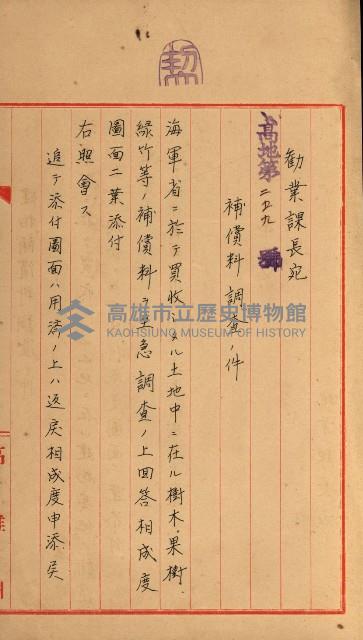 勸業課長宛
高地第二五九號
補償料調查ノ件
海軍省ニ於テ買收シタル土地中ニ在ル樹木、果樹、
綠竹等ノ補償料至急調查ノ上回答相成度
圖面二葉添付
右照會ス
追テ添付圖面ハ用濟ノ上ハ返戾相成度申添候
高雄市立歷史博物館
KAOHSIUNG MUSEUM OF HISTORY
高雄州